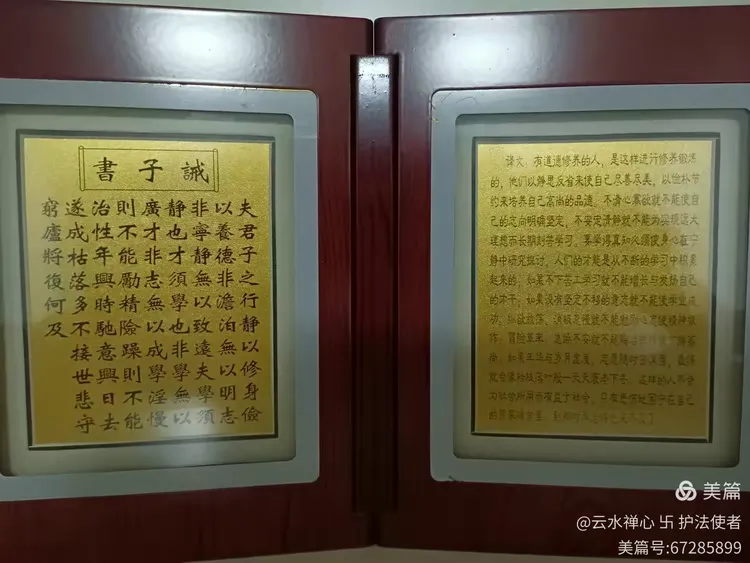 誡子書
夫君子之行静以修身儉
以養德非澹泊無以明志
非寧静無以致遠夫學須
静也才須學也非學無以
廣才非志無以成學淫慢
則不能勵精險躁則不能
治性年與時馳意與日去
遂成枯落多不接世悲守
窮廬將復何及
译文：有道德修养的人，是这样进行修养锻炼
的，他们以静思反省来使自己尽善尽美，以俭朴节
约来培养自己高尚的品德，不清心寡欲就不能使自
己的志向明确坚定，不安定清静就不能为实现远大
理想而长期刻苦学习。要学得真知必须使身心在宁
静中研究探讨，人们的才能是从不断的学习中积累
起来的；如果不下苦工学习就不能增长与发扬自己
的才干；如果没有坚定不移的意志就不能使学业成
功。纵欲放荡、消极怠慢就不能勉励心志使精神振
作；冒险草率、急躁不安就不能
尚。如果年华与岁月虚度，志愿随时日消磨，最终
就会像枯枝落叶般一天天衰老下去。这样的人不会
为社会所用而有益于社会，只有悲伤地困守在自己
的穷家破舍里，到那时再悔也来不及了。
美篇
@云水禅心 卐 护法使者
美篇号:67285899